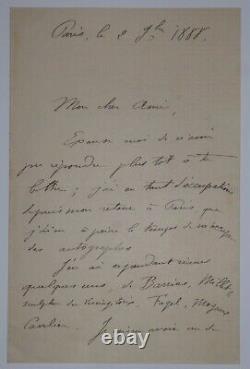 Paris, le 2 9bre 1888.
Mon cher Ami,
Excuse moi de n'avoir
pu répondre plus tôt à ta
lettre ; j'ai eu tant d'occupations
depuis mon retour à Paris que
j'ai eu à peine le temps de m'occuper
des autographes
J'ai cependant réuni
quelques uns, de Barrias, Millet
sculpteur, Fagel,
Cavelier. J'espère avoir un de
© eBay